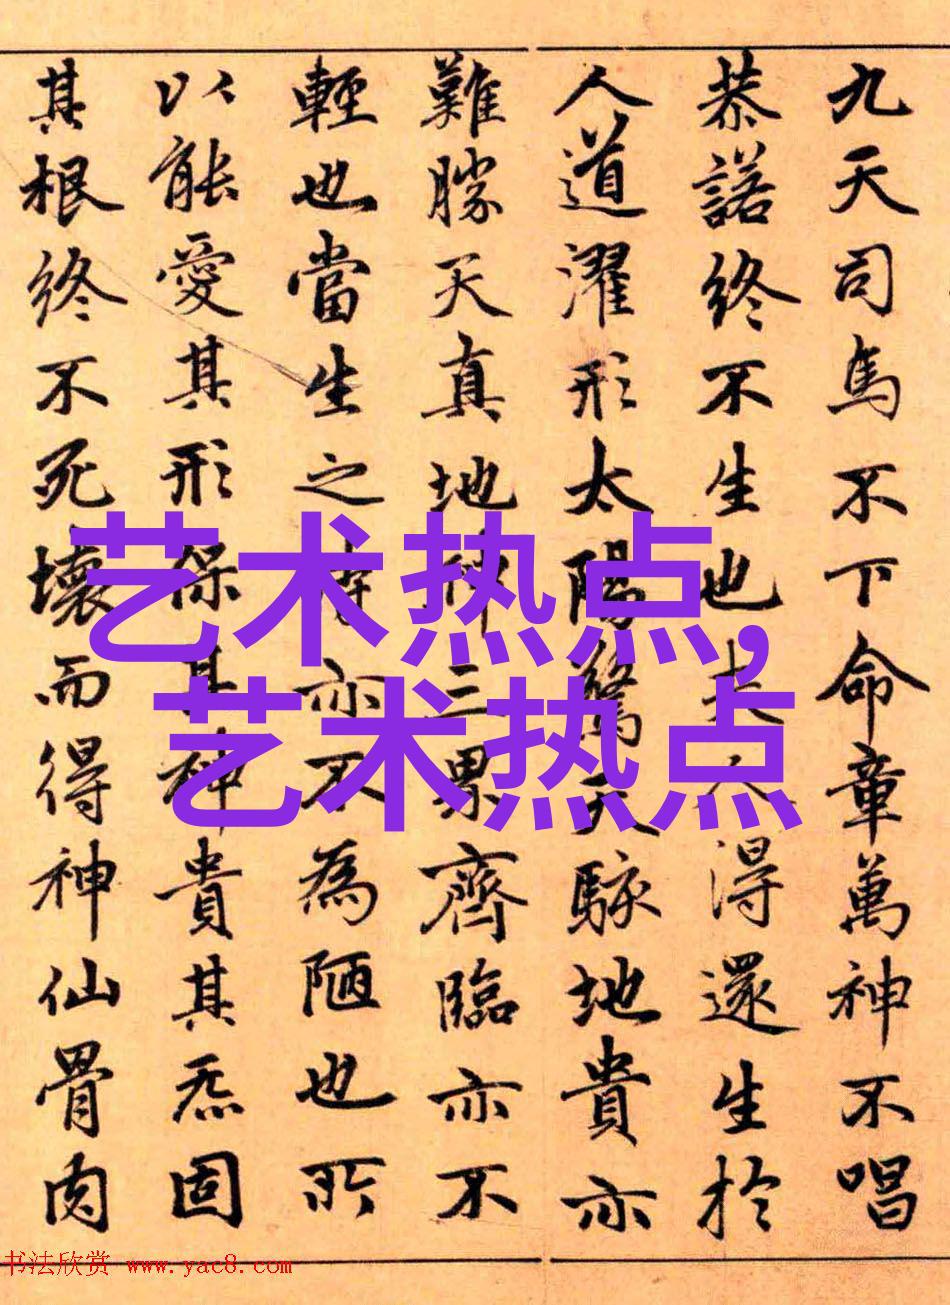 九天司馬不下命章萬神不唱
恭諾終不生也夫人得還生於
人道濯形太陽驚天駭地貴亦
難勝天真地神三累齊臨亦不
輕也當生之時亦不為陋也所
以能愛其形保其神貴其炁固
其根終不死壞而得神仙骨肉
艺术热点,
艺术热点
书法欣赏 www.yac8.com